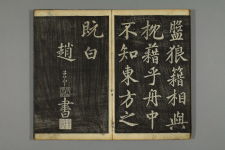 盤狼籍相與
枕藉乎舟中
不知東方之
既白
趙
書